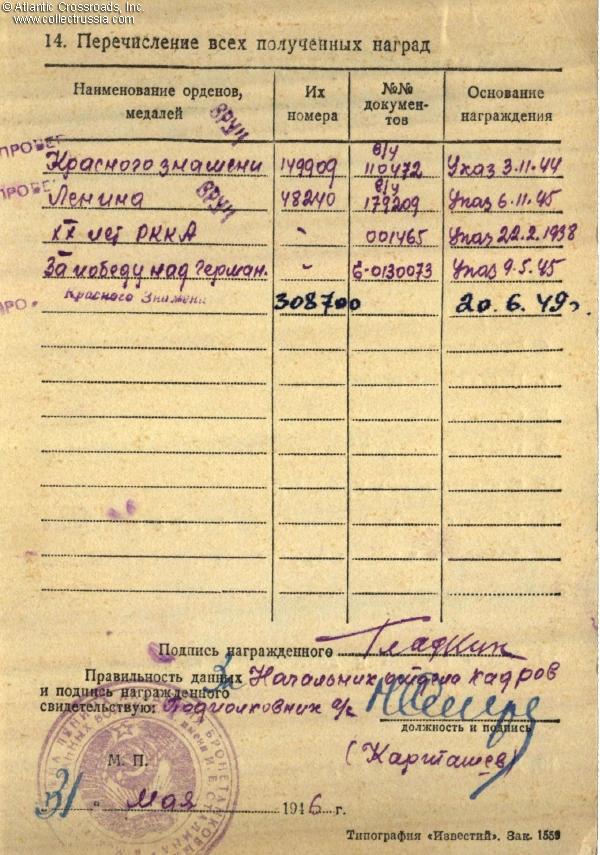 © Atlantic Crossroads, Inc.
www.collectrussia.com
14. Перечисление всех полученных наград
Наименование орденов, медалей
Их номера
№№ документов
Основание награждения
ПРОВЕР ВРУЧ
Красного знамени 149909 в/у 110472 Указ 3.11.44
ПРОВЕР ВРУЧ
Ленина 48240 в/у 179209 Указ 6.11.45
XX лет РККА - 001465 Указ 22.2.1938
За победу над Герман. - Б-0130073 Указ 9.5.45
ПРО
Красного Знамени 308700 20.6.49г.
Подпись награжденного Гладкин
Правильность данных Начальник отдела кадров
и подпись награжденного
свидетельствую: Подполковник а/с
должность и подпись
(Карташев)
М. П.
31 " мая 1946 г.
Типография «Известий». Зак. 1559